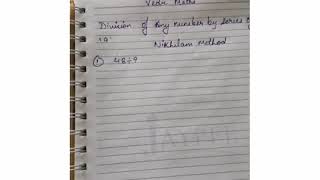 Vedic Maths
Division of Any number by series of
'9'
Nikhilam Method
① 48÷9